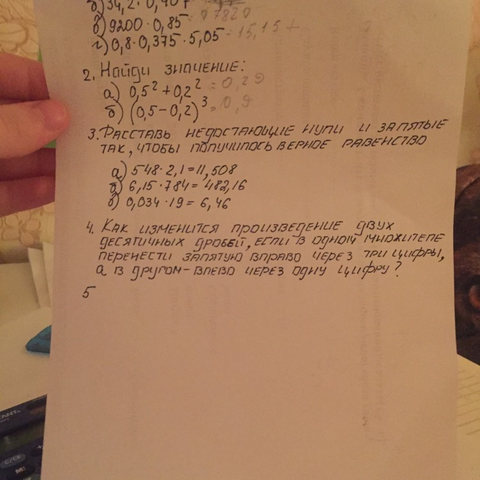 б) 34,2 · 0,407
в) 9200 · 0,85 = 07820
г) 0,8 · 0,375 · 5,05 = 15,15
2. Найди значение:
а) 0,5² + 0,2² = 0,29
б) (0,5 – 0,2)³ = 0,9
3. Расставь недостающие нули и запятые
так, чтобы получилось верное равенство
а) 548 · 2,1 = 11,508
б) 6,15 · 784 = 482,16
в) 0,034 · 19 = 6,46
4. Как изменится произведение двух
десятичных дробей, если в одном множителе
перенести запятую вправо через три цифры,
а в другом – влево через одну цифру?
5